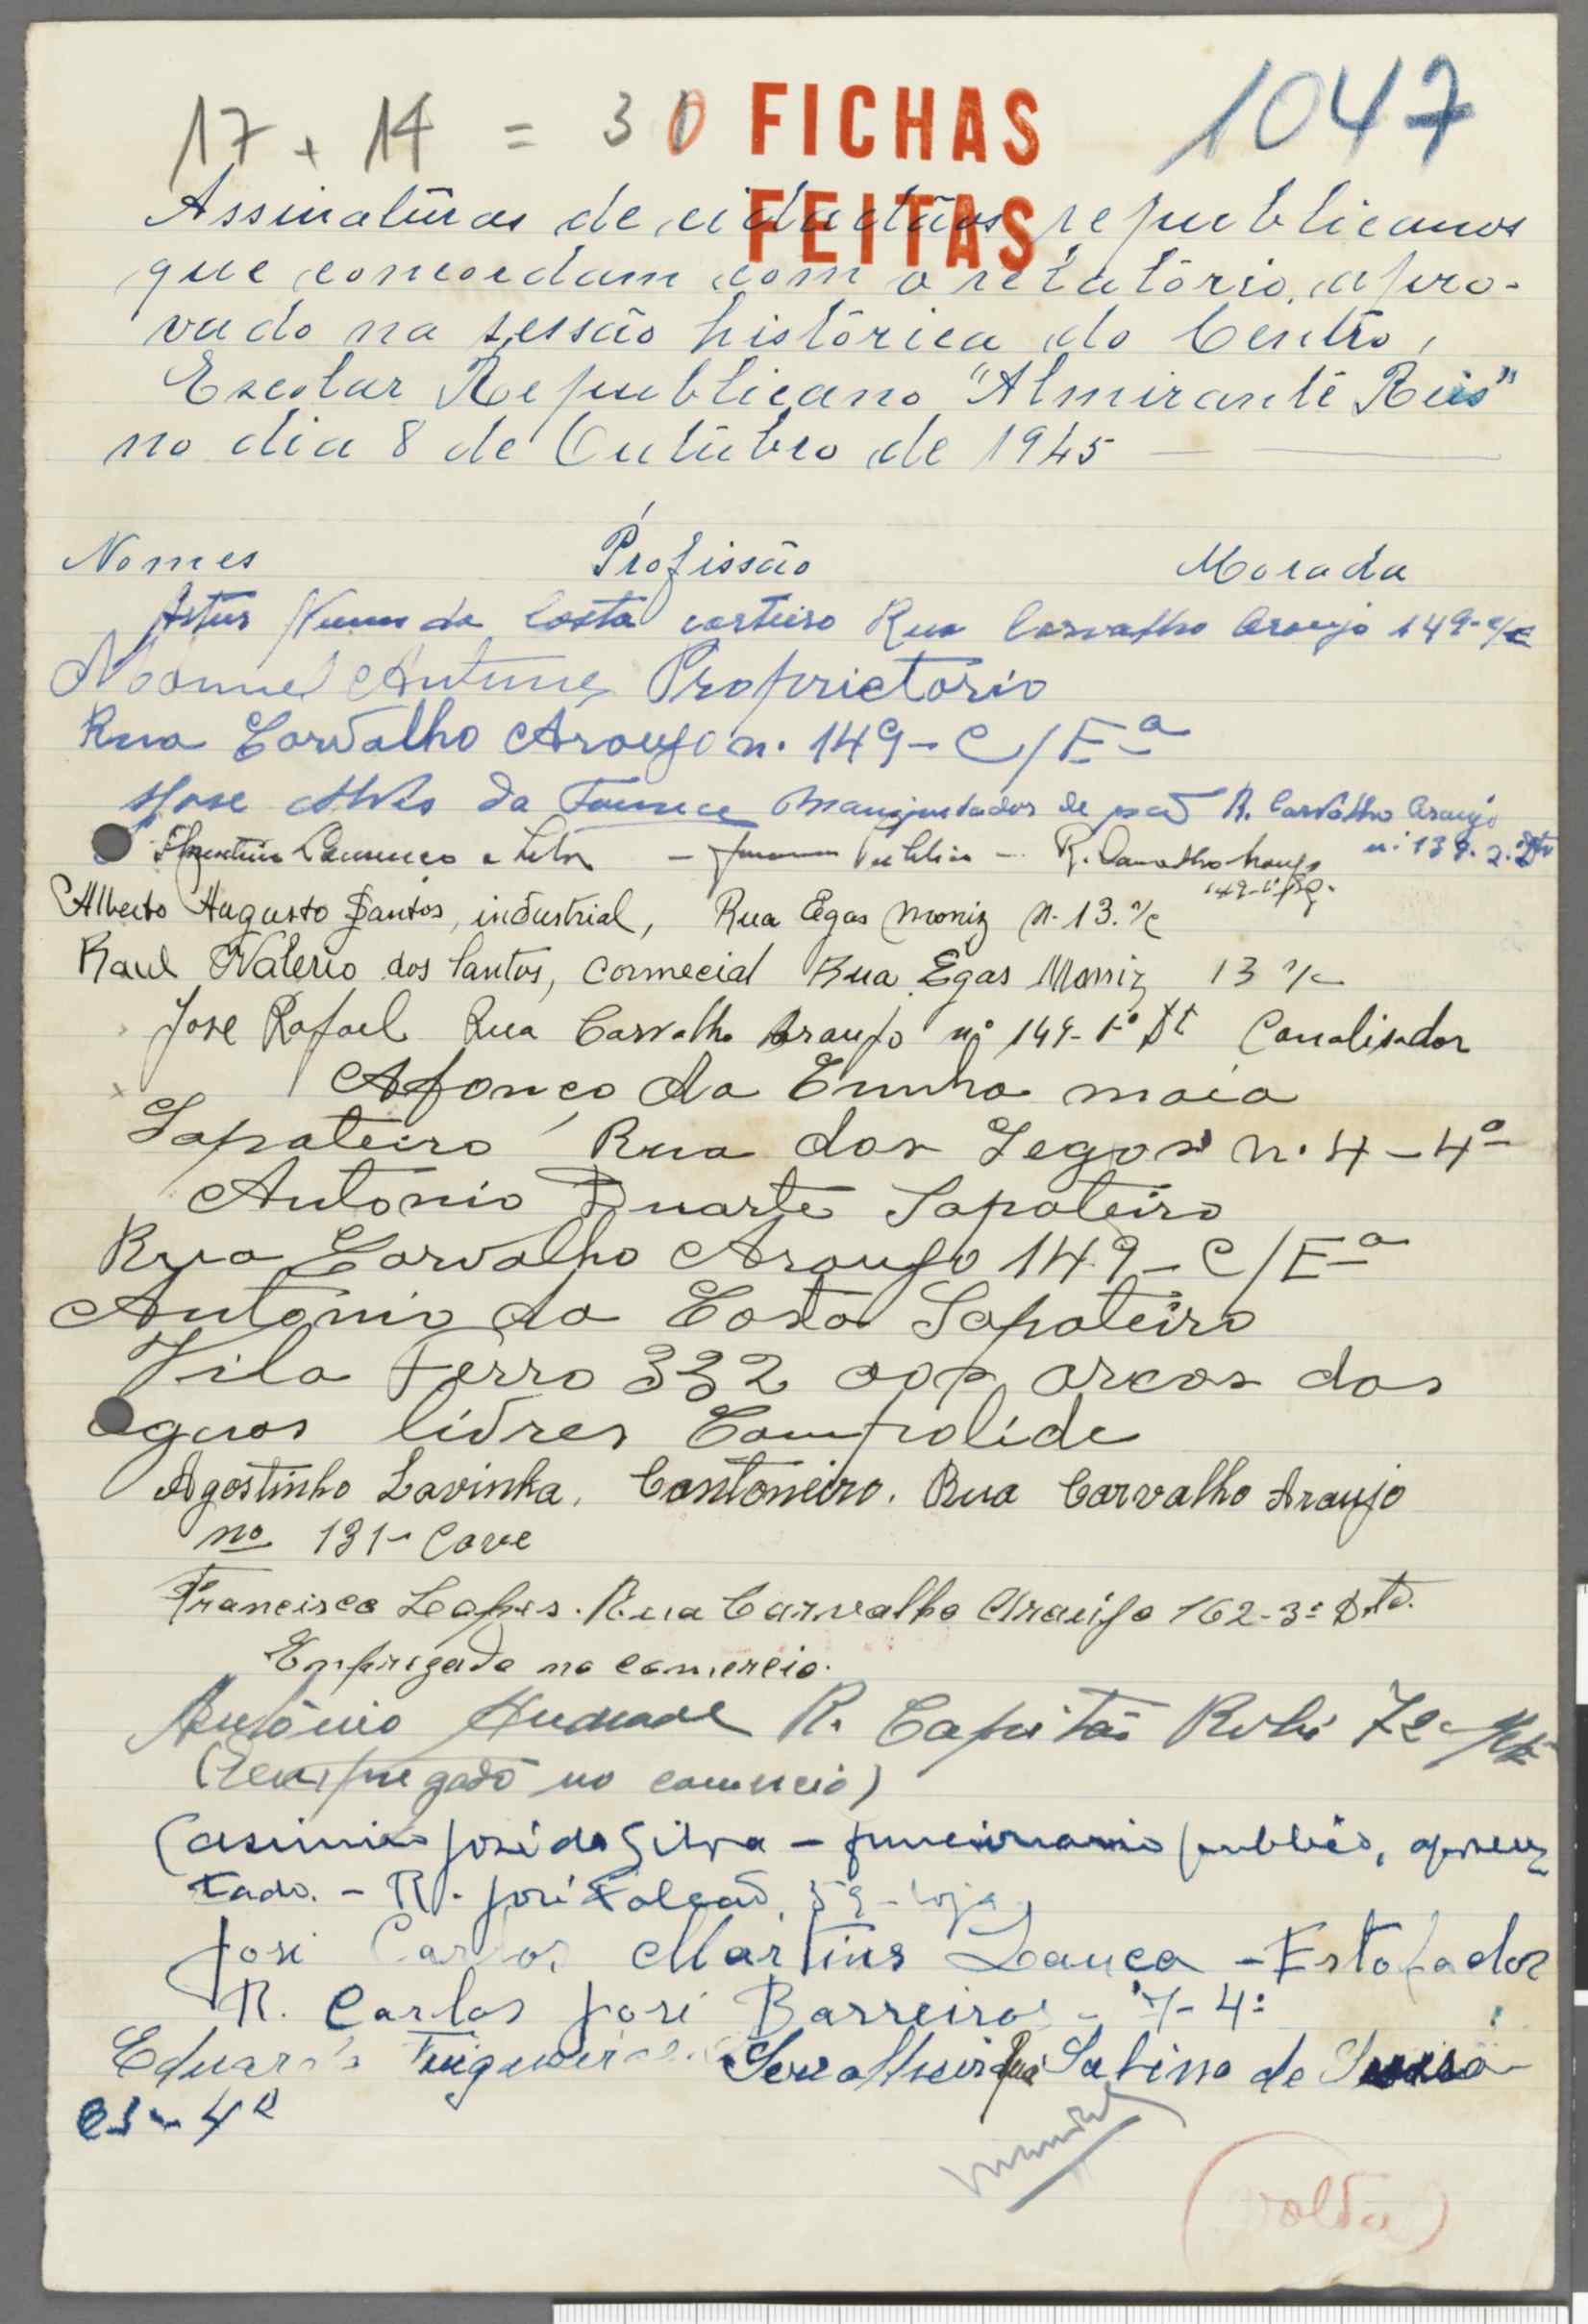 17 + 14 = 30 FICHAS 1047
FEITAS
Assinatúras de cidadãos republicanos
que concordam com o relatório, apro-
vado na sessão histórica do Centro,
Escolar Republicano "Almirante Reis"
no dia 8 de Outúbro de 1945
Nomes Profissão Morada
Artur da Costa Rua Carvalho Araujo 149-c/E
Manuel Antunes Proprietario
Rua Carvalho Araujo n. 149-C/Eª
Jose Alves da Manipulador de pão R. Carvalho Araujo
n. 139. 2. Dto
R. Carvalho Araujo
Alberto Augusto Santos, industrial, Rua Egas Moniz N. 13. r/c
Raul Valerio dos Santos, comecial Rua Egas Moniz 13 r/c
Jose Rafael Rua Carvalho Araujo nº 149-1º Dt Canalisador
Afonço da Cunha maia
Sapateiro Rua dos Legos n. 4-4º
Antonio Duarte Sapateiro
Rua Carvalho Araujo 149-C/Eª
Antonio da Costa Sapateiro
Vila Ferro 332 aos arcos das
aguas livres Campolide
Agostinho Lavinha. Cantoneiro. Rua Carvalho Araujo
nº 131- Cave
Francisco Lopes. Rua Carvalho Araújo 162-3º Dto.
Empregado no comercio.
António Andrade R. Capitão Robi 72
(Empregado no comercio)
Casimiro José da Silva - funcionario publico, aposen
tado. - R. José Falcão, 59-loja
José Carlos Martins Lança - Estofador
R. Carlos José Barreiros - 7-4º
Eduardo Serralheiro Rua Sabino de Sousa
23-4º
(volta)